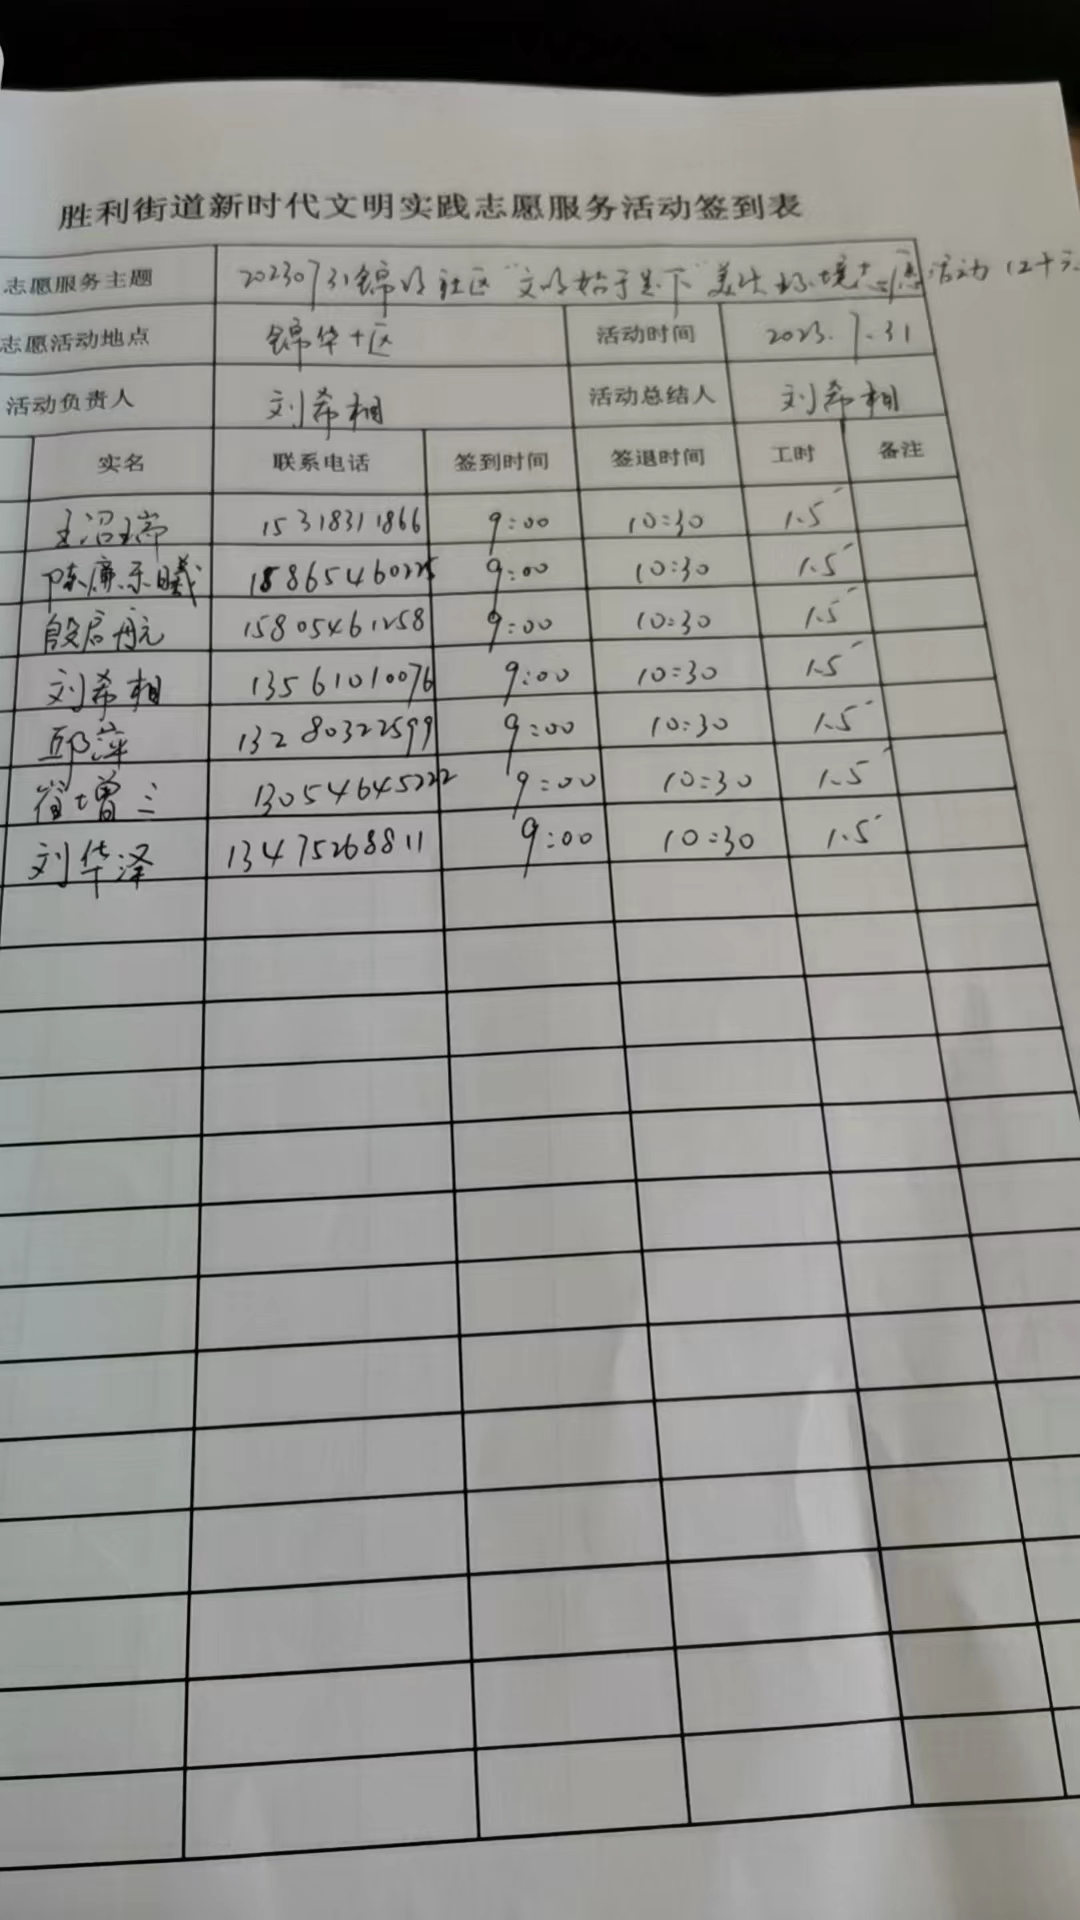 胜利街道新时代文明实践志愿服务活动签到表
志愿服务主题 20230731锦华社区"文明始于足下"美化环境志愿活动
志愿活动地点 锦华十区 活动时间 2023.7.31
活动负责人 刘希相 活动总结人 刘希相
实名 联系电话 签到时间 签退时间 工时 备注
王沼瑞 15318311866 9:00 10:30 1.5
陈廉乐曦 18865460225 9:00 10:30 1.5
殷启航 15805461258 9:00 10:30 1.5
刘希相 13561010076 9:00 10:30 1.5
邱萍 13280322599 9:00 10:30 1.5
崔增三 13054645222 9:00 10:30 1.5
刘华泽 13475268811 9:00 10:30 1.5